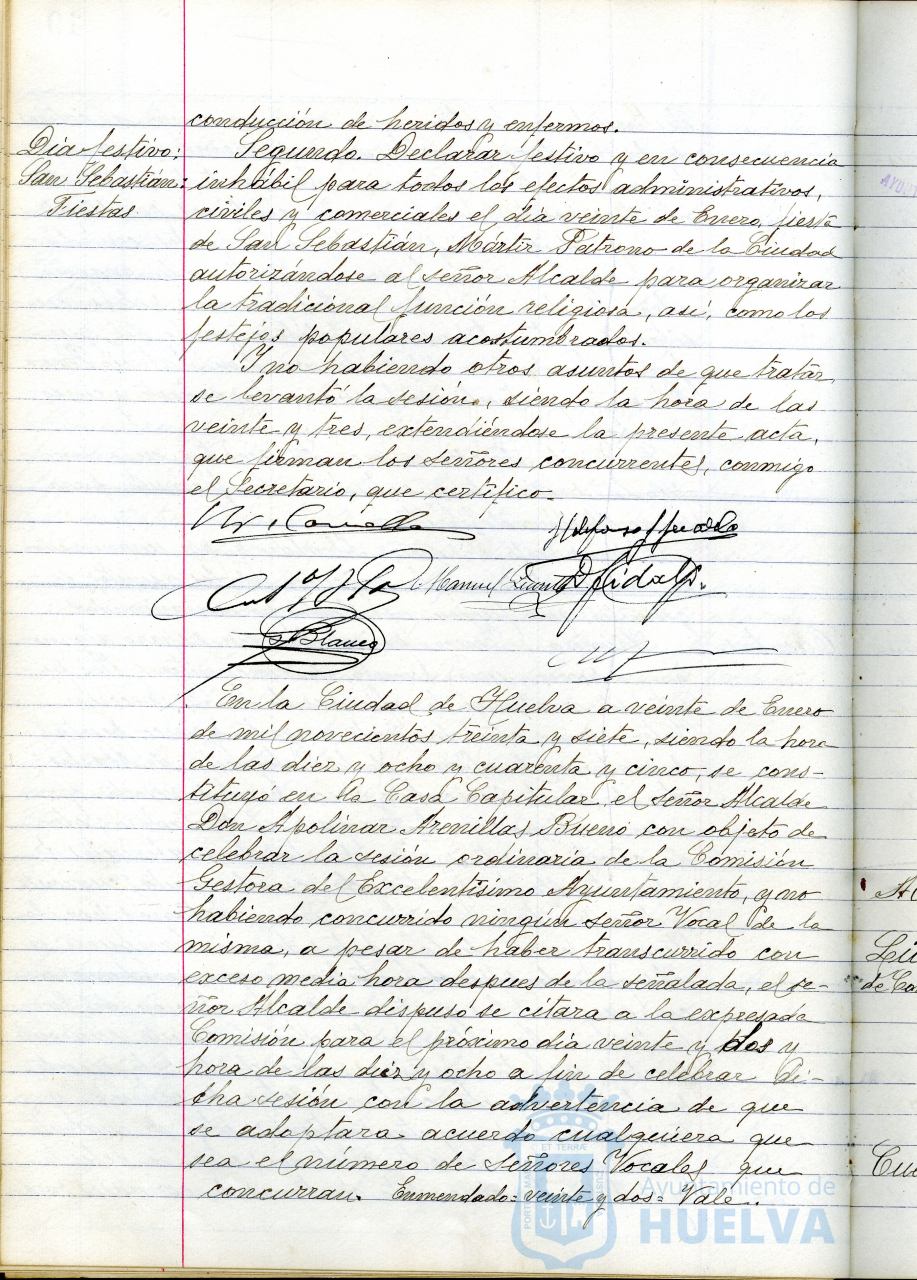 conducción de heridos y enfermos.
Dia festivo:
San Sebastián:
Fiestas
Segundo. Declarar festivo y en consecuencia
inhábil para todos los efectos administrativos,
civiles y comerciales el día veinte de Enero, fiesta
de San Sebastián, Mártir Patrono de la Ciudad
autorizándose al señor Alcalde para organizar
la tradicional función religiosa, así, como los
festejos populares acostumbrados.
Y no habiendo otros asuntos de que tratar,
se levantó la sesión, siendo la hora de las
veinte y tres, extendiéndose la presente acta,
que firman los señores concurrentes, conmigo
el Secretario, que certifico.
Manuel
Blanco
En la Ciudad de Huelva a veinte de Enero
de mil novecientos treinta y siete, siendo la hora
de las diez y ocho y cuarenta y cinco, se cons-
tituyó en la Casa Capitular, el señor Alcalde
Don Apolinar Arenillas Bueno con objeto de
celebrar la sesión ordinaria de la Comisión
Gestora del Excelentísimo Ayuntamiento, y no
habiendo concurrido ningún señor Vocal de la
misma, a pesar de haber transcurrido con
exceso media hora despues de la señalada, el se-
ñor Alcalde dispuso se citara a la expresada
Comisión para el próximo dia veinte y dos y
hora de las diez y ocho a fin de celebrar di-
cha sesión con la advertencia de que
se adoptara acuerdo cualquiera que
sea el número de señores Vocales que
concurran. Enmendado = veinte y dos = Vale.
Ayuntamiento de
HUELVA